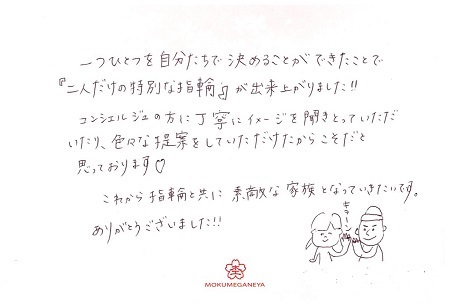 一つひとつを自分たちで決めることができたことで
『二人だけの特別な指輪』が出来上がりました!!
コンシェルジュの方に丁寧にイメージを聞きとっていただ
いたり、色々な提案をしていただけたからこそだと
思っております♡
これから指輪と共に素敵な家族となっていきたいです。
キラーン
ありがとうございました!!
MOKUMEGANEYA